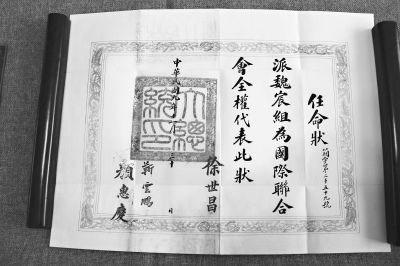 任命狀
簡字第二 五十九號
派魏宸組為國際聯合
會全權代表此狀
中華民國九年 月 日
大總統印
徐世昌
靳雲鵬
顏惠慶